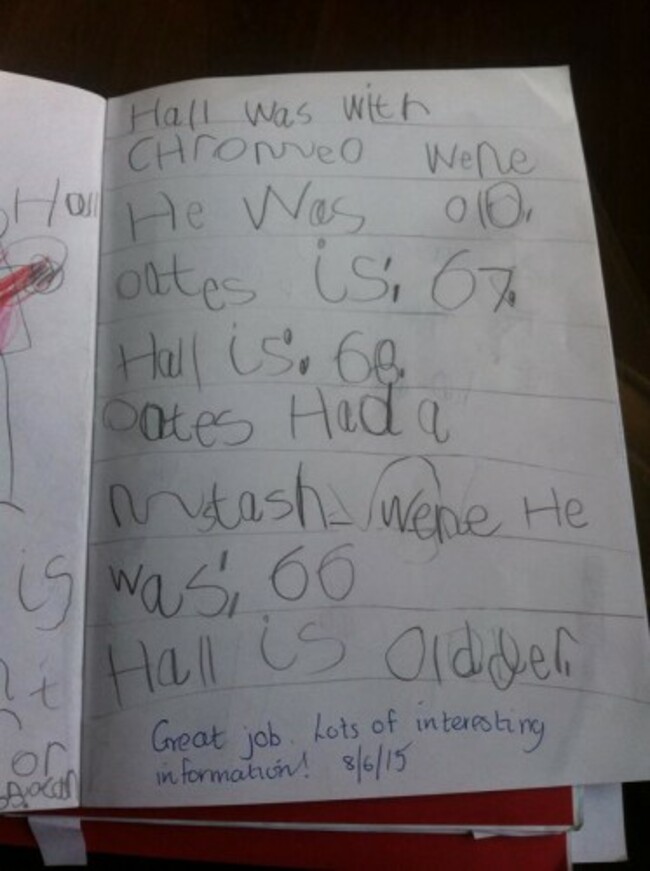 Hall was with
CHromeo wene
He Was old.
oates is. 67.
Hall is. 68.
oates Had a
mustash wene He
was. 66
Hall is oldder.
Great job. Lots of interesting
information! 8/6/15
Hall
is
or